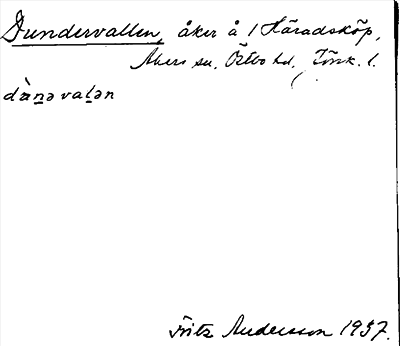 Dundervallen, åker å 1 Häradsköp,
Åkers sn. Östbo hd, Jönk. l.
dànə valən
Fritz Andersson 1937.